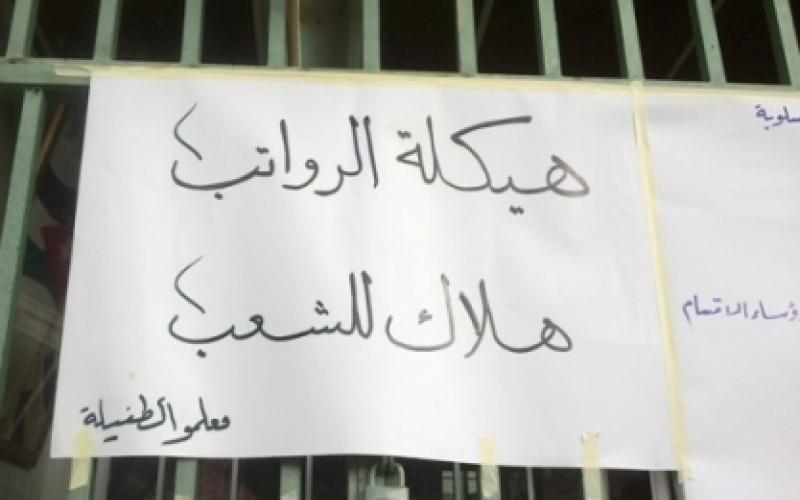 هيكلة الرواتب
هلاك للشعب
معلمو الطفيلة
سلوبة
ؤساء الاقسام